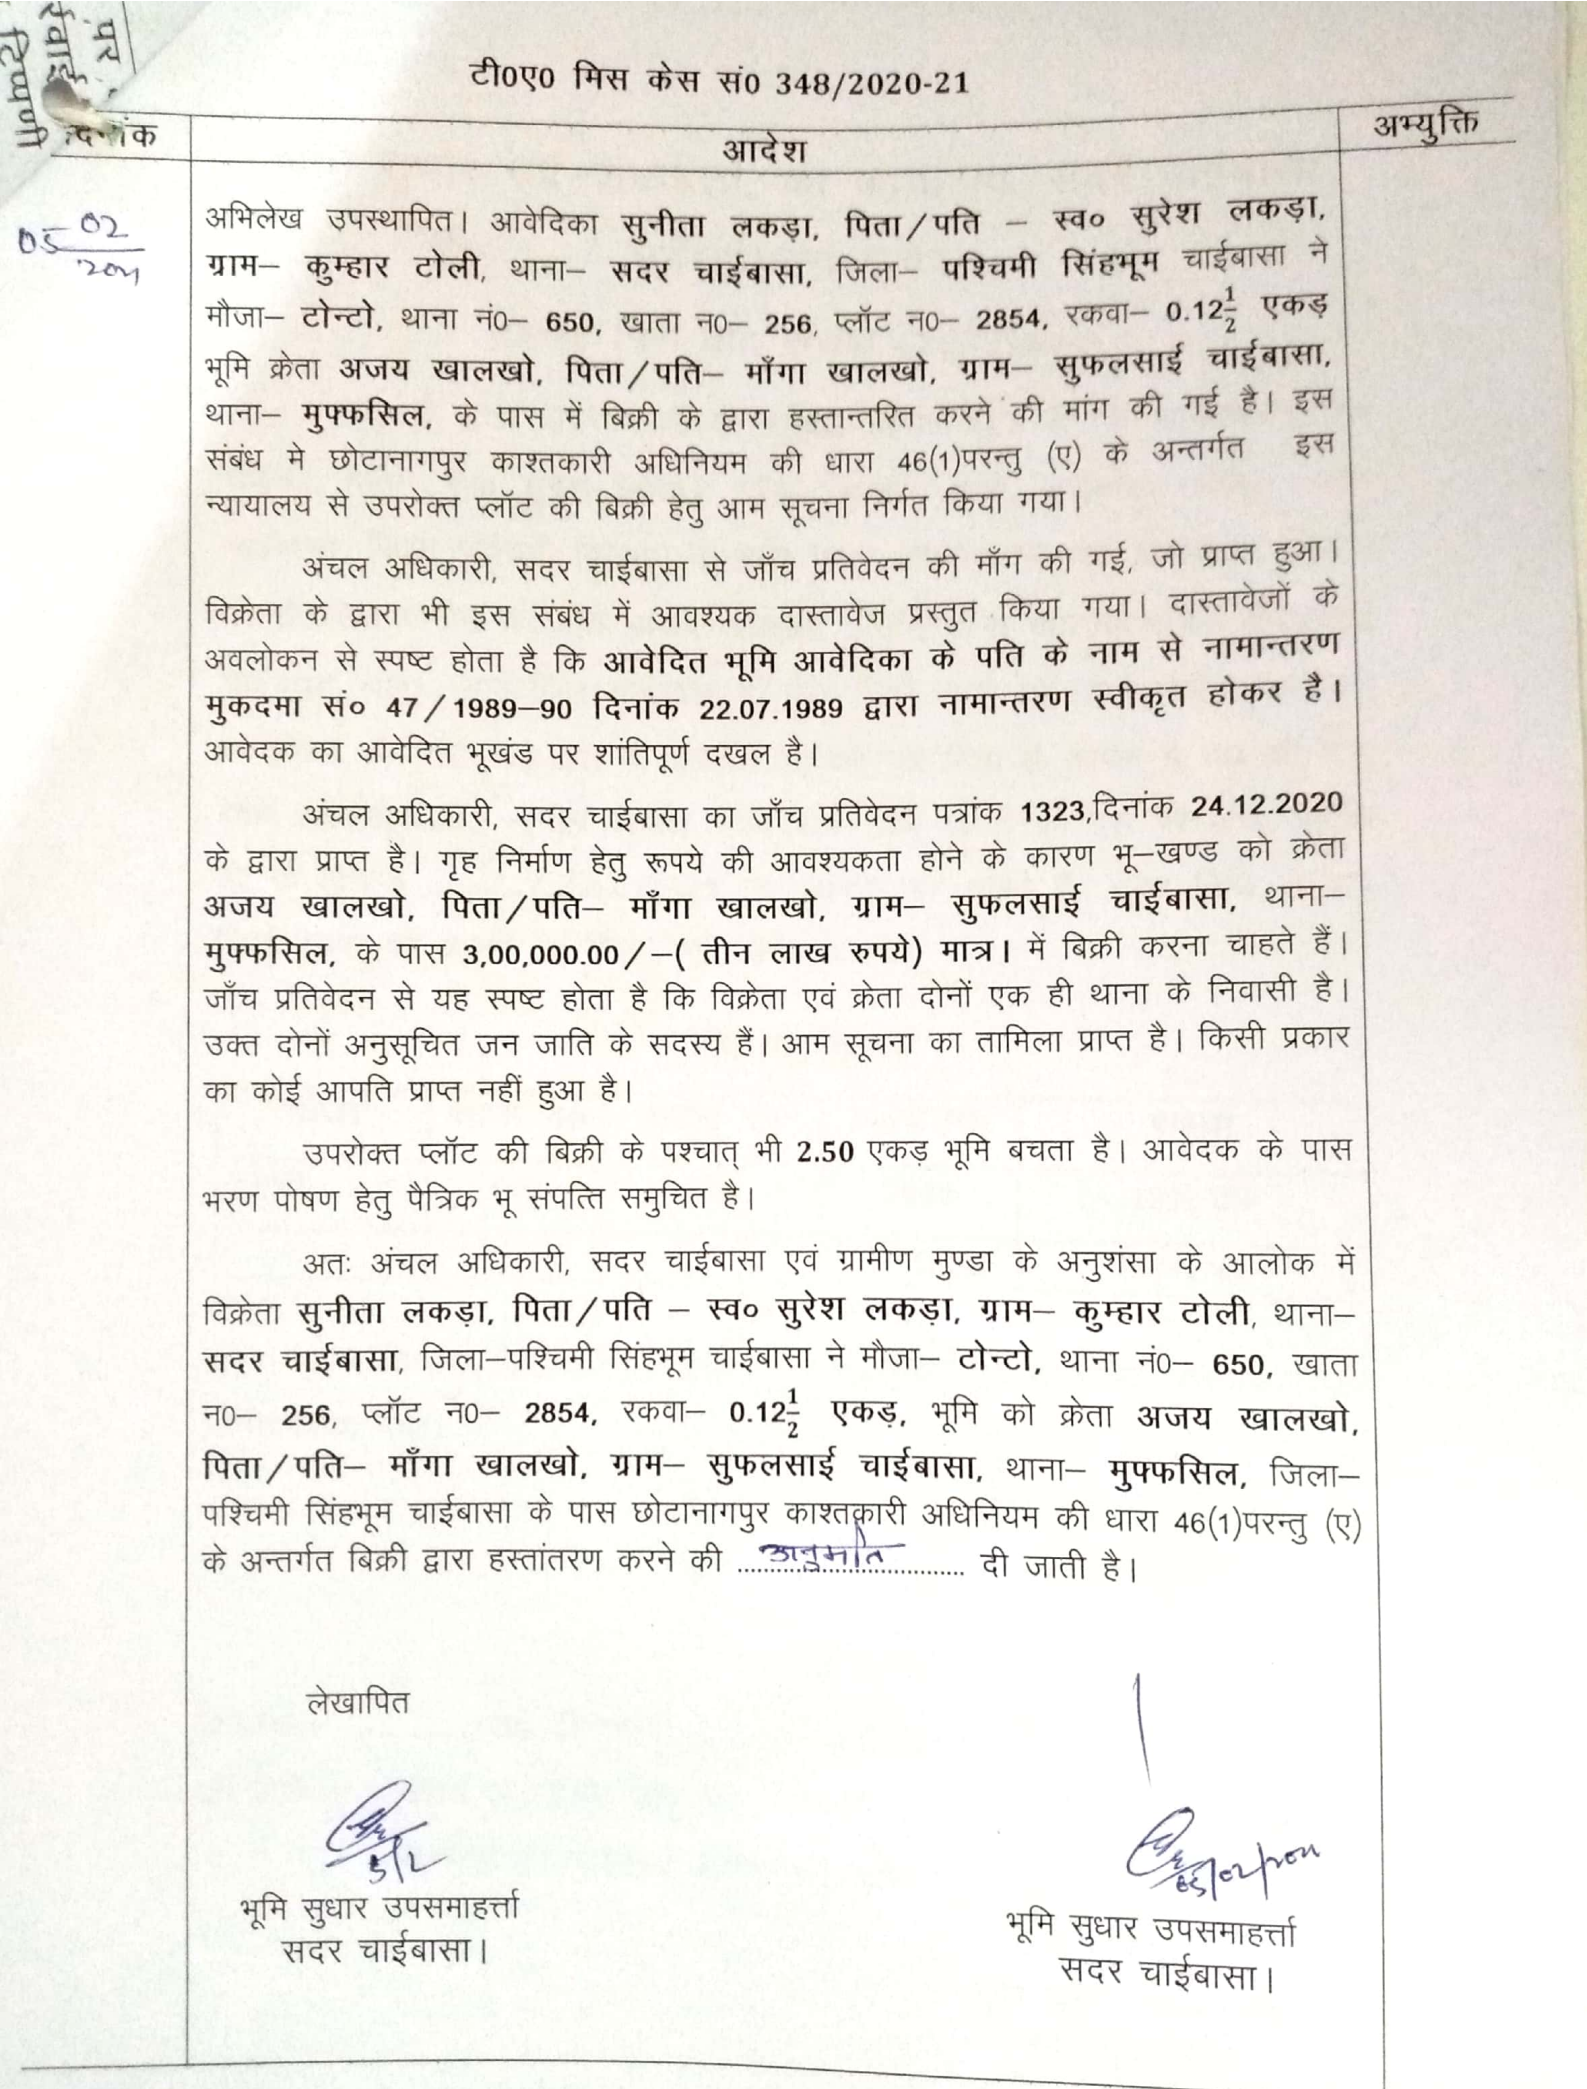 पर
टिप्पणी
टी0ए0 मिस केस सं0 348/2020-21
दिनांक
आदेश
अभ्युक्ति
05 02
2021
अभिलेख उपस्थापित। आवेदिका सुनीता लकड़ा, पिता/पति – स्व० सुरेश लकड़ा,
ग्राम– कुम्हार टोली, थाना– सदर चाईबासा, जिला– पश्चिमी सिंहभूम चाईबासा ने
मौजा– टोन्टो, थाना नं0– 650, खाता न0– 256, प्लॉट न0– 2854, रकवा– 0.12½ एकड़
भूमि क्रेता अजय खालखो, पिता/पति– माँगा खालखो, ग्राम– सुफलसाई चाईबासा,
थाना– मुफ्फसिल, के पास में बिक्री के द्वारा हस्तान्तरित करने की मांग की गई है। इस
संबंध मे छोटानागपुर काश्तकारी अधिनियम की धारा 46(1)परन्तु (ए) के अन्तर्गत इस
न्यायालय से उपरोक्त प्लॉट की बिक्री हेतु आम सूचना निर्गत किया गया।
अंचल अधिकारी, सदर चाईबासा से जाँच प्रतिवेदन की माँग की गई, जो प्राप्त हुआ।
विक्रेता के द्वारा भी इस संबंध में आवश्यक दास्तावेज प्रस्तुत किया गया। दास्तावेजों के
अवलोकन से स्पष्ट होता है कि आवेदित भूमि आवेदिका के पति के नाम से नामान्तरण
मुकदमा सं० 47/1989–90 दिनांक 22.07.1989 द्वारा नामान्तरण स्वीकृत होकर है।
आवेदक का आवेदित भूखंड पर शांतिपूर्ण दखल है।
अंचल अधिकारी, सदर चाईबासा का जाँच प्रतिवेदन पत्रांक 1323,दिनांक 24.12.2020
के द्वारा प्राप्त है। गृह निर्माण हेतु रूपये की आवश्यकता होने के कारण भू–खण्ड को क्रेता
अजय खालखो, पिता/पति– माँगा खालखो, ग्राम– सुफलसाई चाईबासा, थाना–
मुफ्फसिल, के पास 3,00,000.00/–( तीन लाख रुपये) मात्र। में बिक्री करना चाहते हैं।
जाँच प्रतिवेदन से यह स्पष्ट होता है कि विक्रेता एवं क्रेता दोनों एक ही थाना के निवासी है।
उक्त दोनों अनुसूचित जन जाति के सदस्य हैं। आम सूचना का तामिला प्राप्त है। किसी प्रकार
का कोई आपति प्राप्त नहीं हुआ है।
उपरोक्त प्लॉट की बिक्री के पश्चात् भी 2.50 एकड़ भूमि बचता है। आवेदक के पास
भरण पोषण हेतु पैत्रिक भू संपत्ति समुचित है।
अतः अंचल अधिकारी, सदर चाईबासा एवं ग्रामीण मुण्डा के अनुशंसा के आलोक में
विक्रेता सुनीता लकड़ा, पिता/पति – स्व० सुरेश लकड़ा, ग्राम– कुम्हार टोली, थाना–
सदर चाईबासा, जिला–पश्चिमी सिंहभूम चाईबासा ने मौजा– टोन्टो, थाना नं0– 650, खाता
न0– 256, प्लॉट न0– 2854, रकवा– 0.12½ एकड़, भूमि को क्रेता अजय खालखो,
पिता/पति– माँगा खालखो, ग्राम– सुफलसाई चाईबासा, थाना– मुफ्फसिल, जिला–
पश्चिमी सिंहभूम चाईबासा के पास छोटानागपुर काश्तकारी अधिनियम की धारा 46(1)परन्तु (ए)
के अन्तर्गत बिक्री द्वारा हस्तांतरण करने की अनुमति दी जाती है।
लेखापित
5/2
05/02/2021
भूमि सुधार उपसमाहर्त्ता
सदर चाईबासा।
भूमि सुधार उपसमाहर्त्ता
सदर चाईबासा।